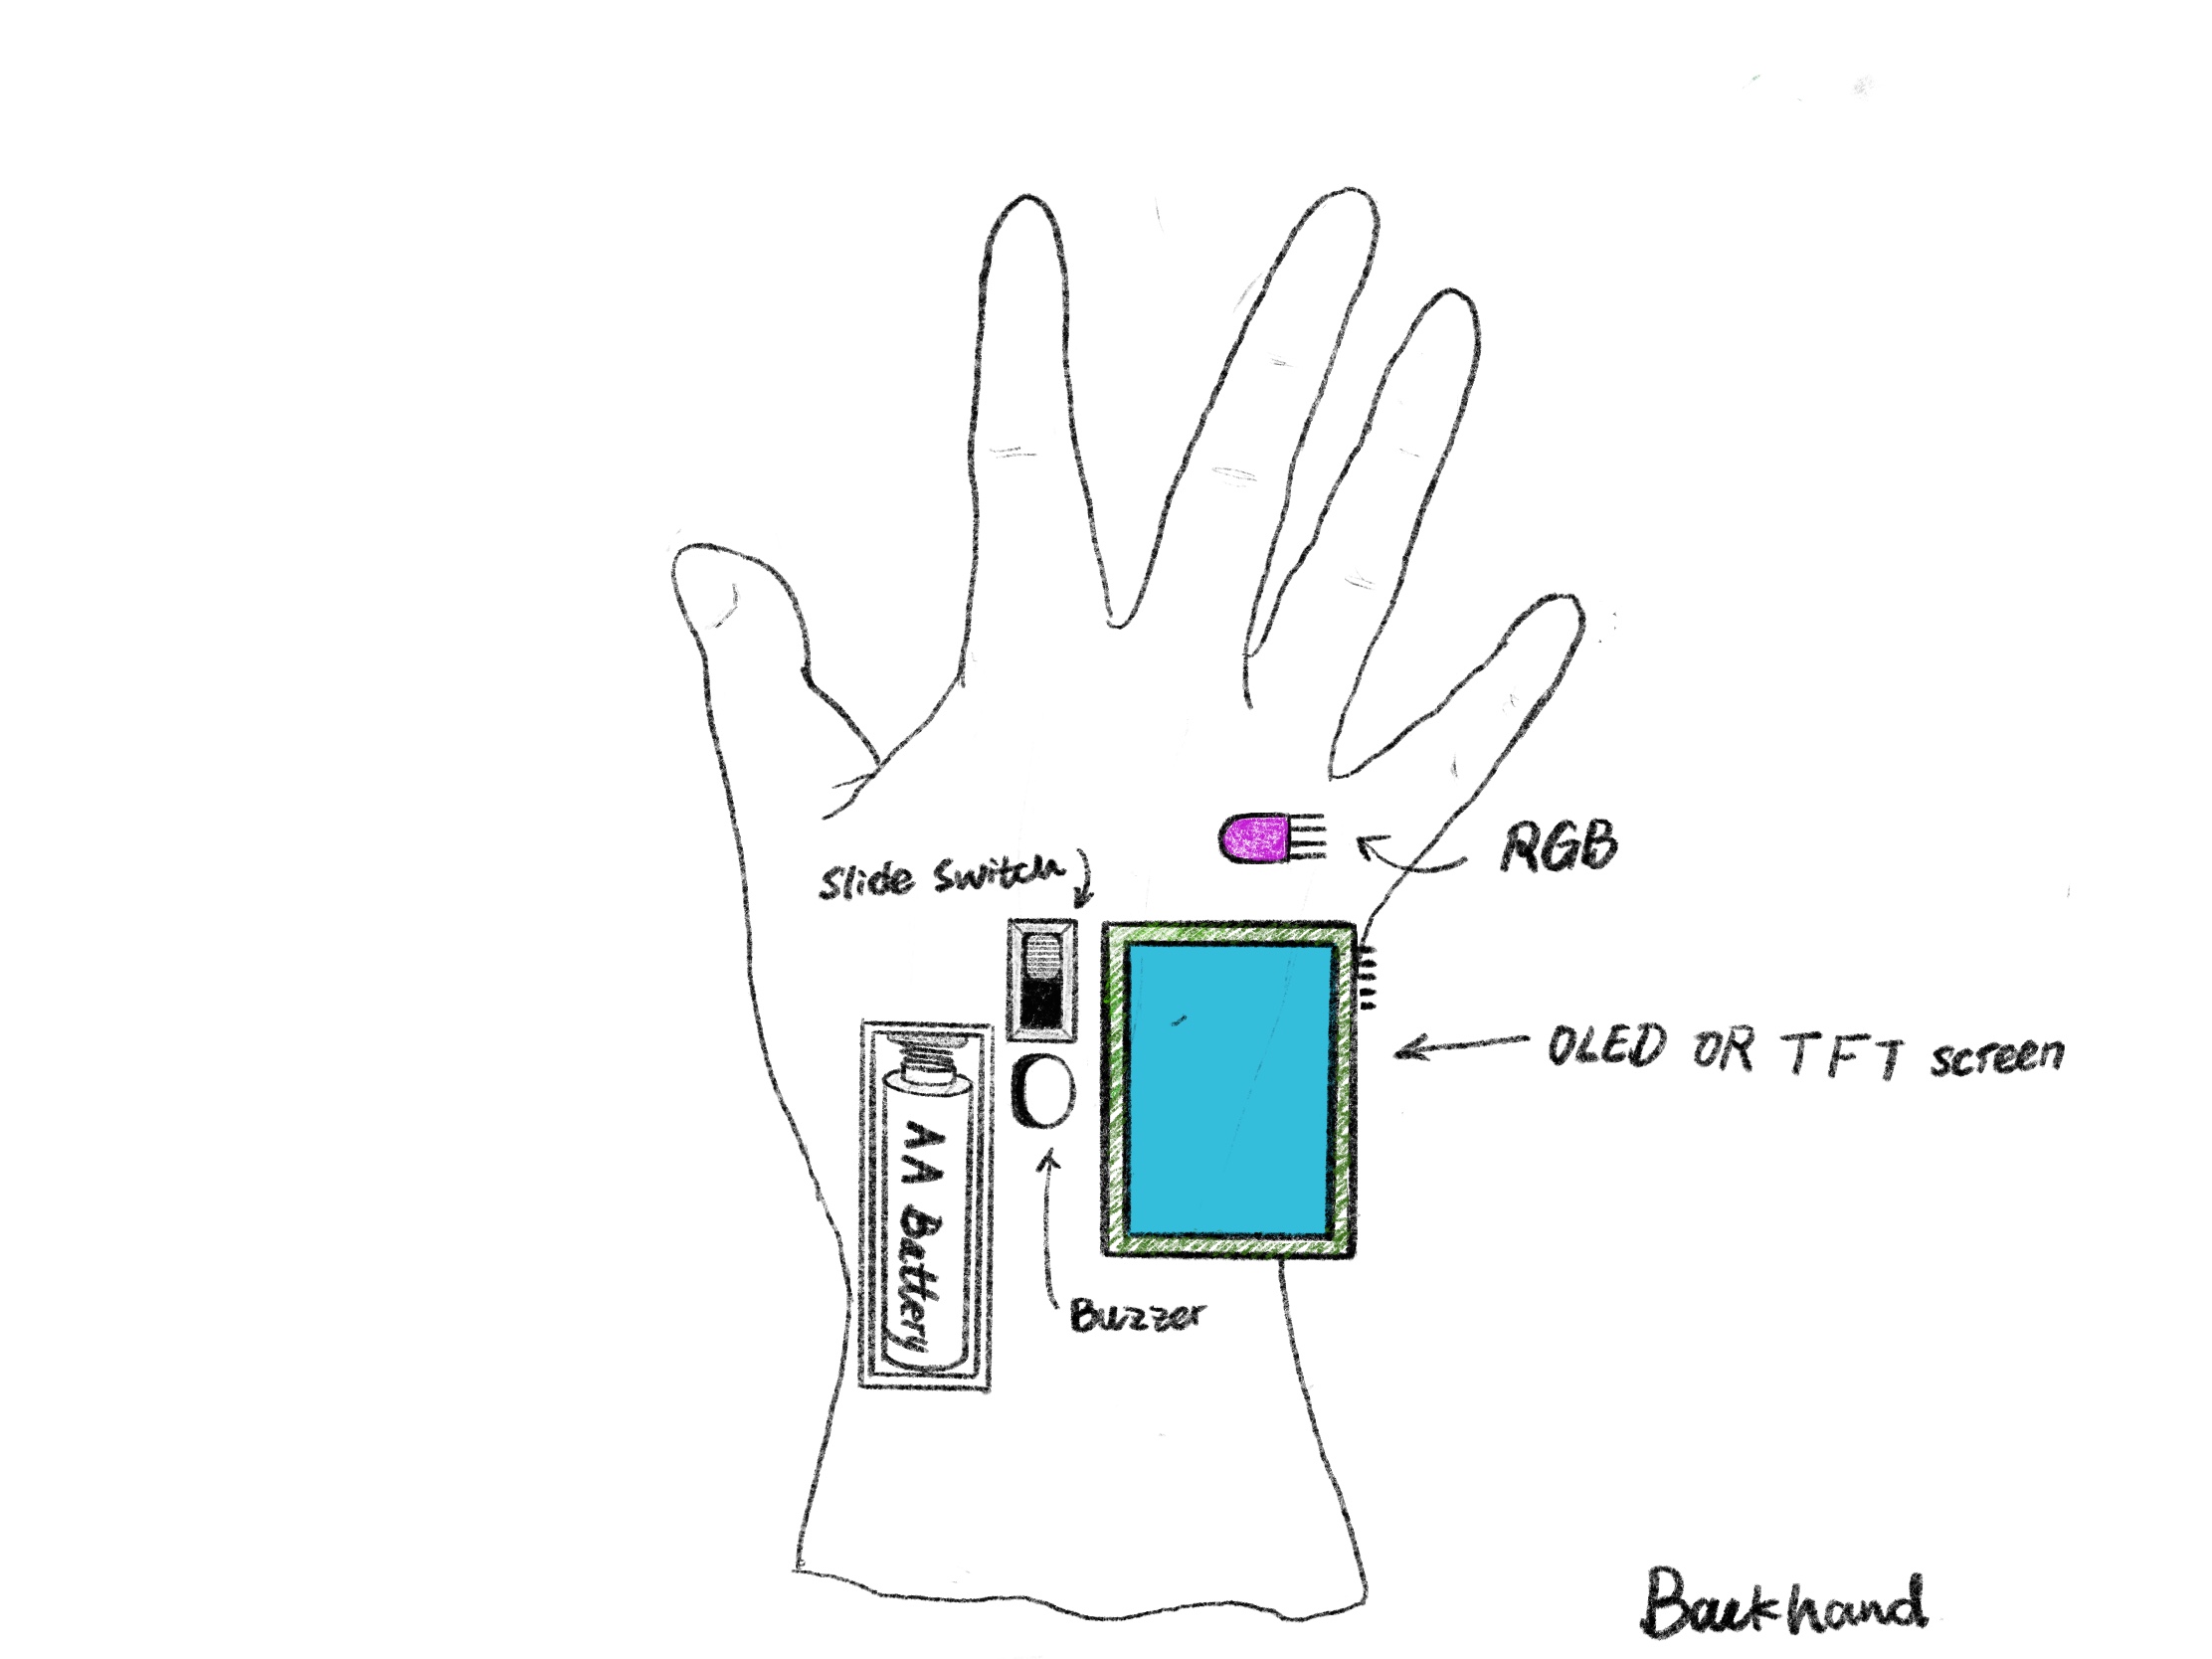 RGB
Slide Switch
OLED OR TFT screen
AA Battery
Buzzer
Backhand